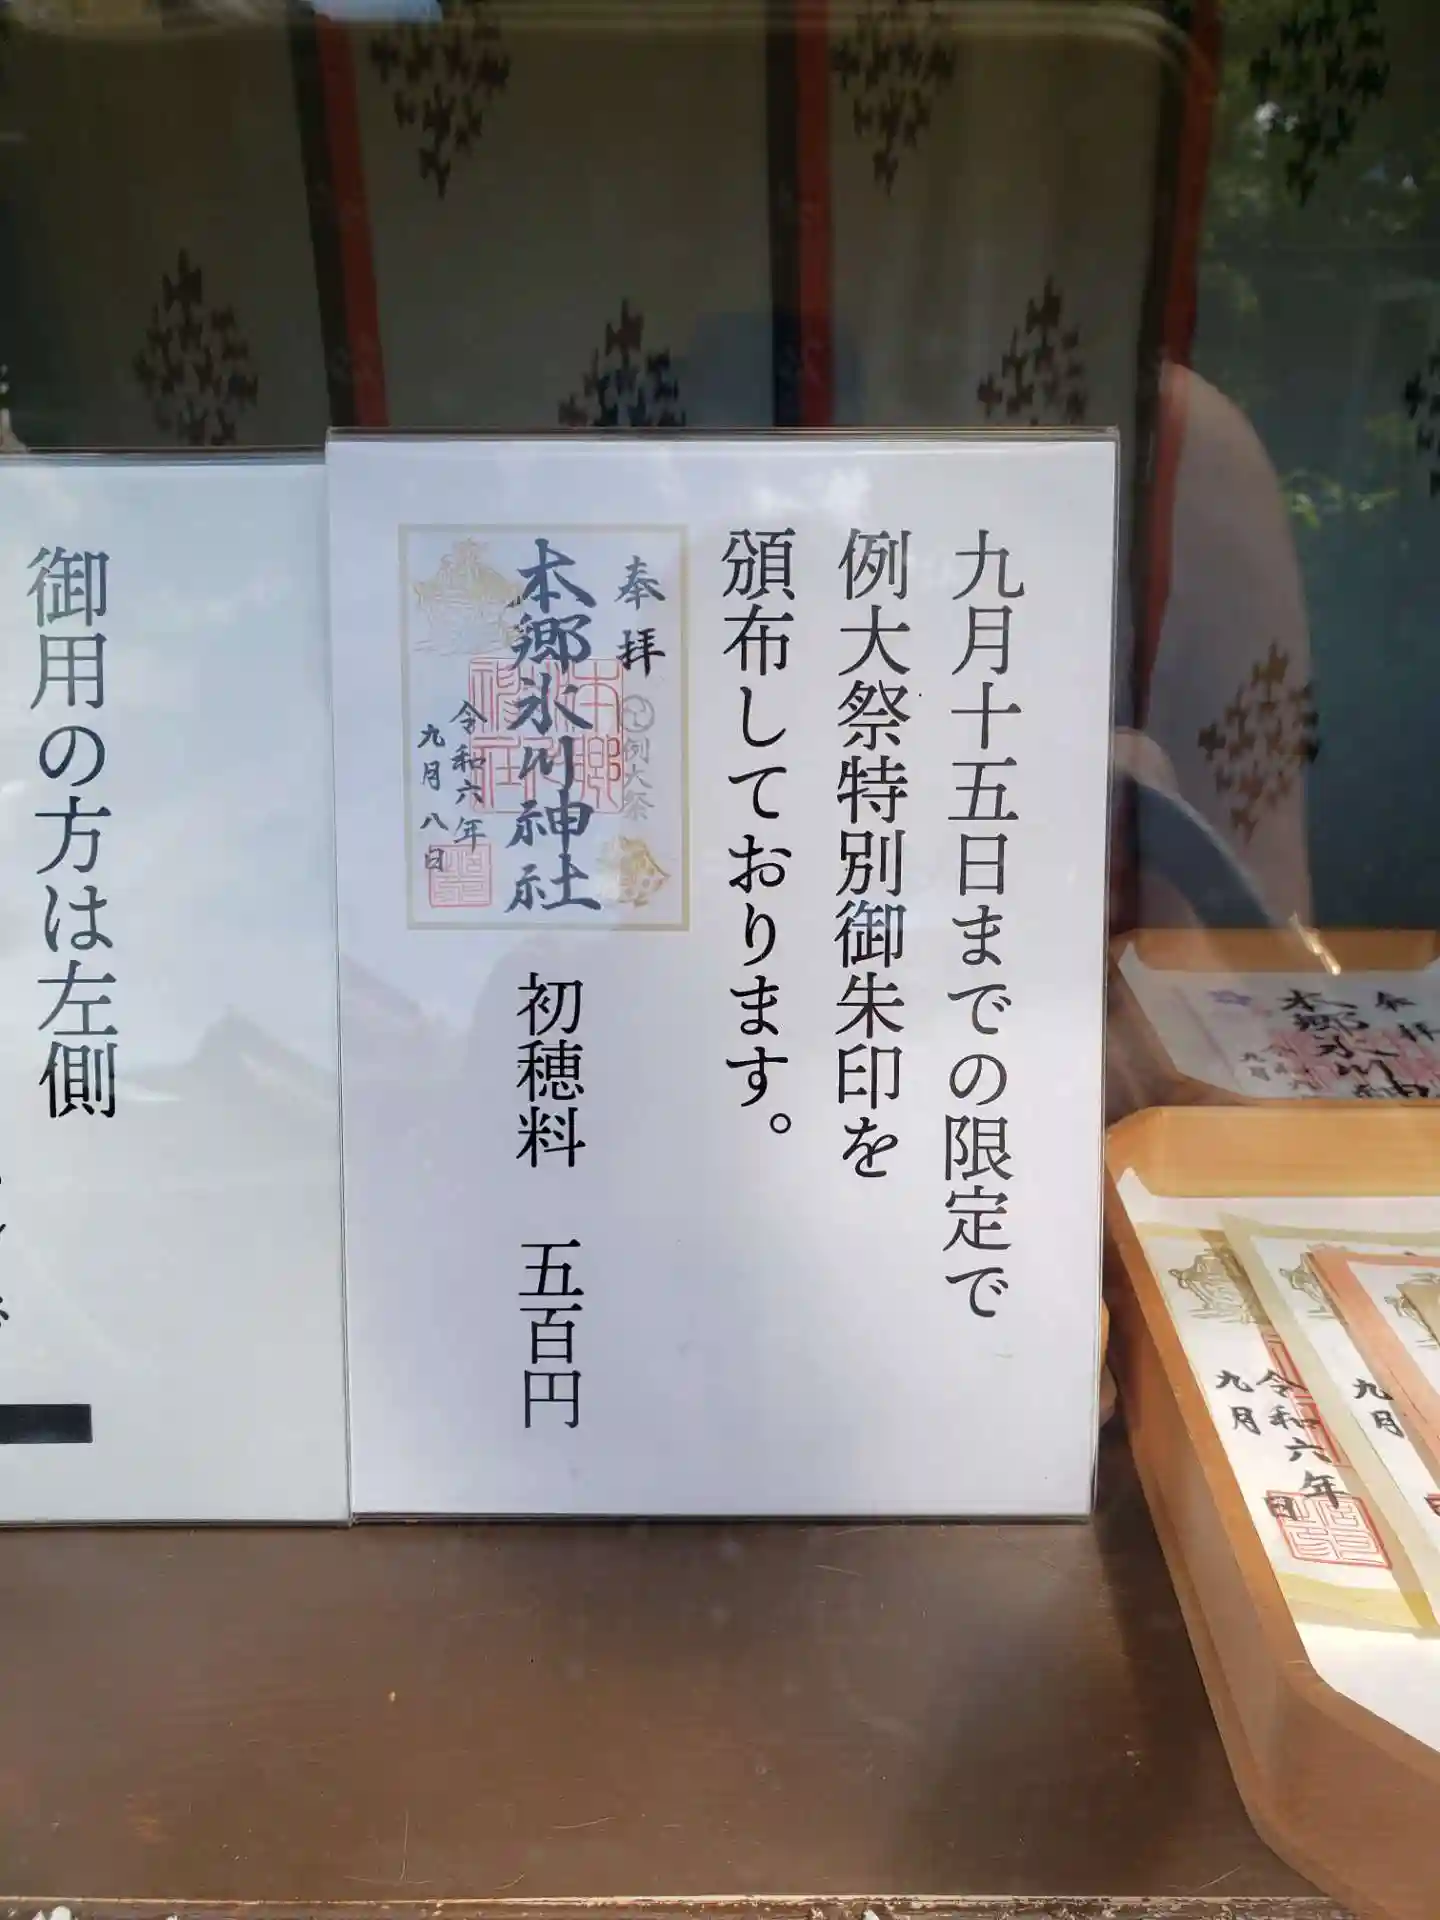 九月十五日までの限定で
例大祭特別御朱印を
頒布しております。
奉拝
例大祭
本郷氷川神社
令和六年
九月八日
初穂料　五百円
御用の方は左側
奉拝
本郷氷川神
九月
令和六年
九月　日
九月